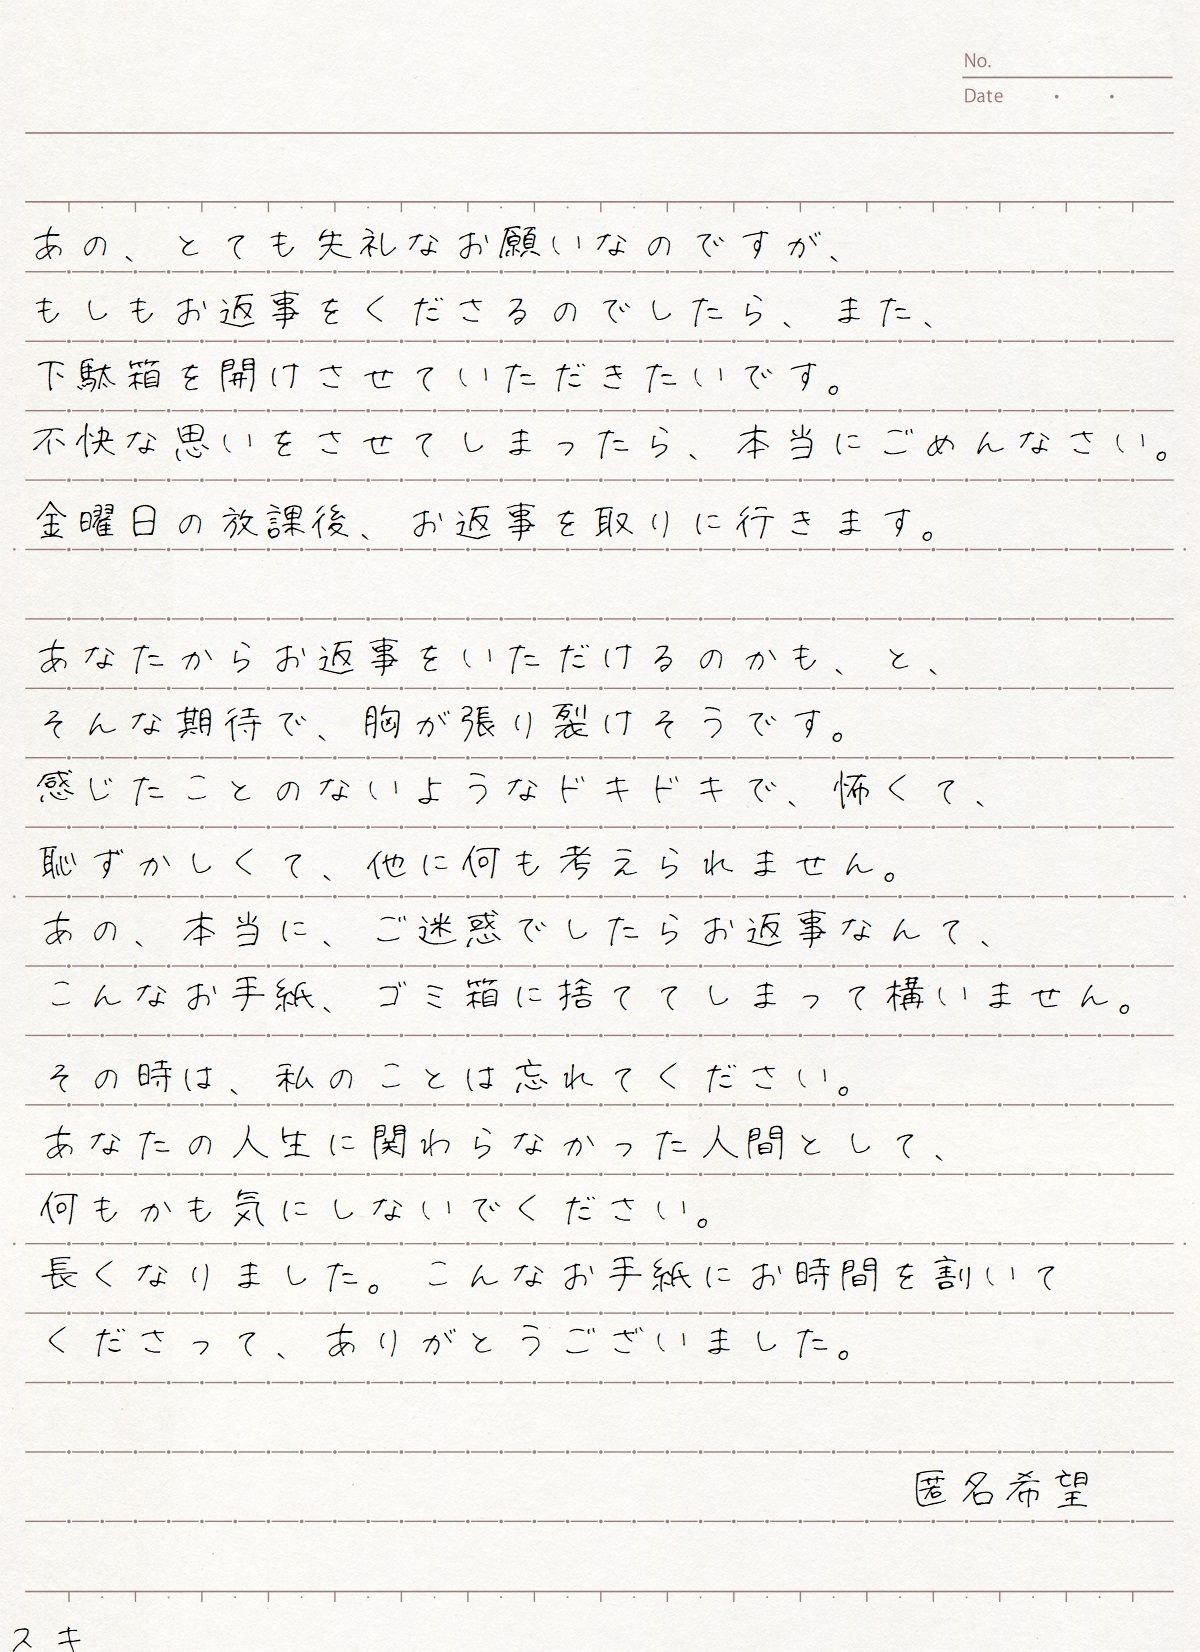 No.
Date
あの、とても失礼なお願いなのですが、
もしもお返事をくださるのでしたら、また、
下駄箱を開けさせていただきたいです。
不快な思いをさせてしまったら、本当にごめんなさい。
金曜日の放課後、お返事を取りに行きます。
あなたからお返事をいただけるのかも、と、
そんな期待で、胸が張り裂けそうです。
感じたことのないようなドキドキで、怖くて、
恥ずかしくて、他に何も考えられません。
あの、本当に、ご迷惑でしたらお返事なんて、
こんなお手紙、ゴミ箱に捨ててしまって構いません。
その時は、私のことは忘れてください。
あなたの人生に関わらなかった人間として、
何もかも気にしないでください。
長くなりました。こんなお手紙にお時間を割いて
くださって、ありがとうございました。
匿名希望
スキ